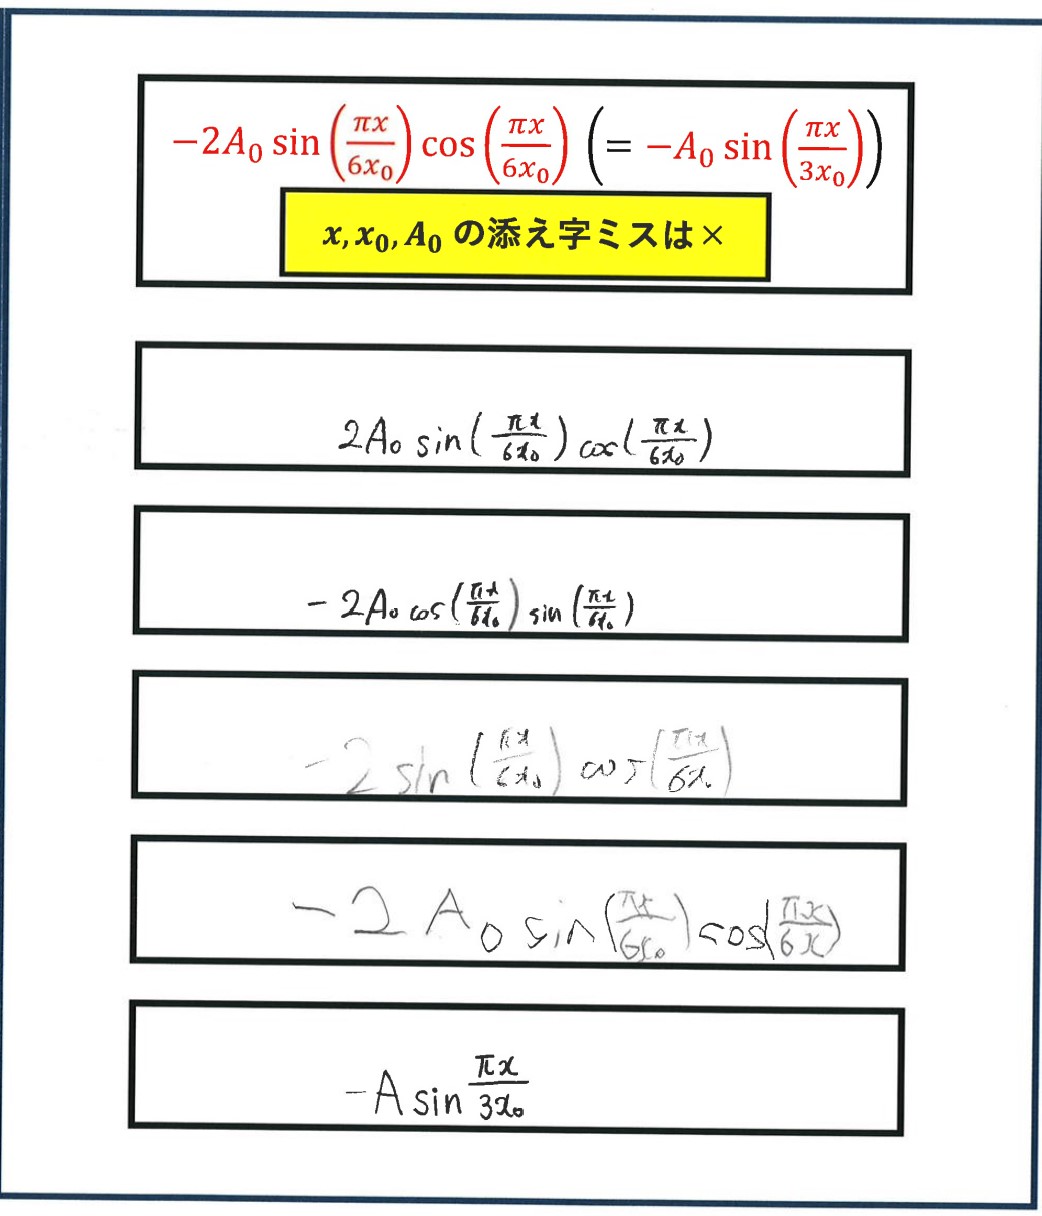 −2A₀ sin(πx/6x₀) cos(πx/6x₀) (= −A₀ sin(πx/3x₀))
x, x₀, A₀ の添え字ミスは×
2A₀ sin(πx/6x₀) cos(πx/6x₀)
−2A₀ cos(πx/6x₀) sin(πx/6x₀)
−2 sin(πx/6x₀) cos(πx/6x₀)
−2 A₀ sin(πx/6x₀) cos(πx/6x)
−A sin πx/3x₀